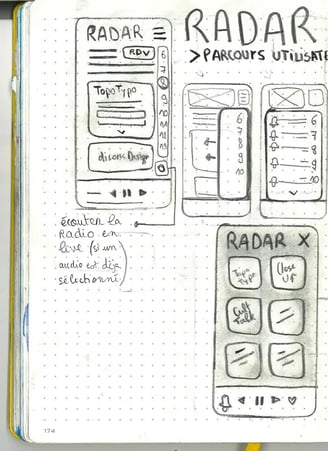 RADAR
RDV
Topo Typo
disons Design
6
7
8
9
10
11
12
RADAR
> PARCOURS UTILISATE
6
7
8
9
10
6
7
8
9
10
écouter la
Radio en
live (si un
audio est déjà
sélectionné)
RADAR X
Topo Typo
Close Up
Cult Talk
174